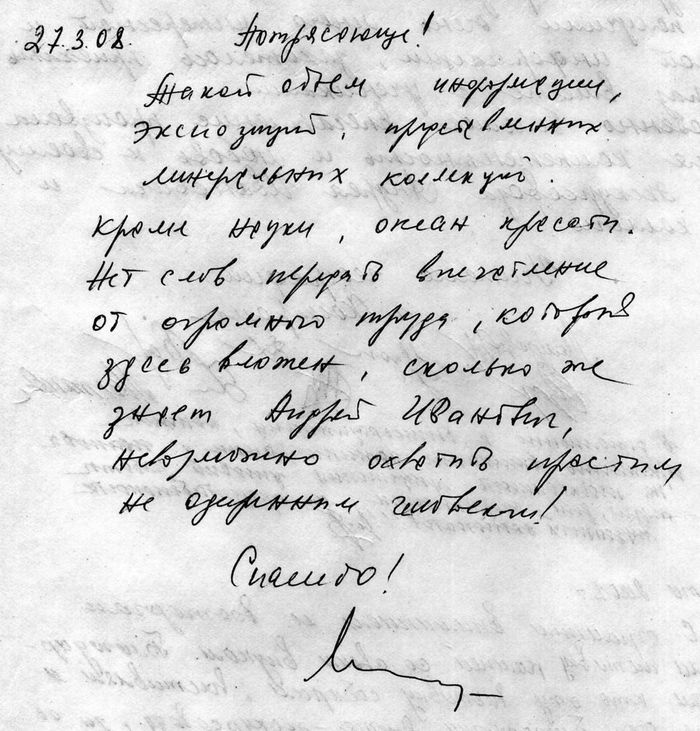 27.3.08. Потрясающе!
Такой объем информации,
экспозиций, представленних
минеральних коллекций.
Кроме науки, океан красоти.
Нет слов передать впечатление
от огромного труда, которой
здесь вложен, сколько же
знает Андрей Иванович,
невозможно охватить простим
не одержимим человеком!
Спасибо!